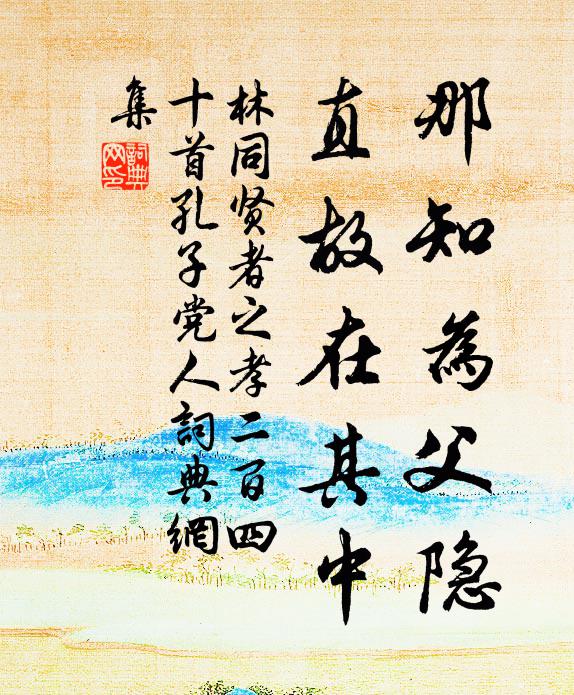 那知為父隐
直故在其中
林同贤者之孝二百四
十首孔子党人詞典網
集
詞典网印